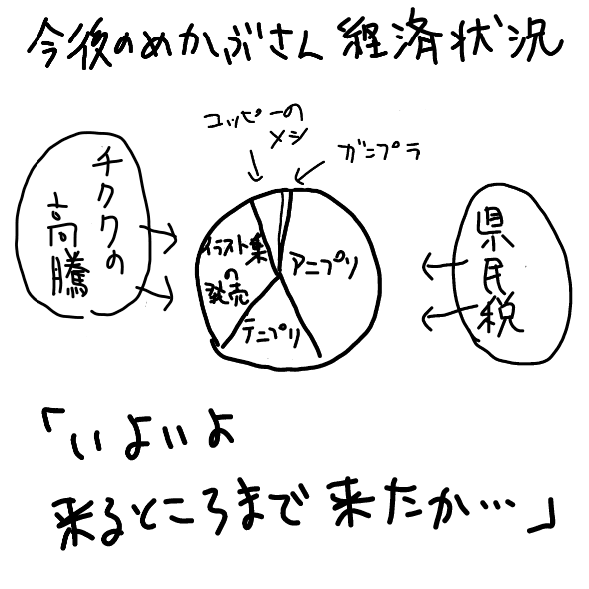 今後のめかぶさん 経済状況
コッピーの
メシ
ガンプラ
チククの
高騰
イラスト集
の
発売
アニプリ
テニプリ
県民税
「いよいよ
来るところまで来たか…」